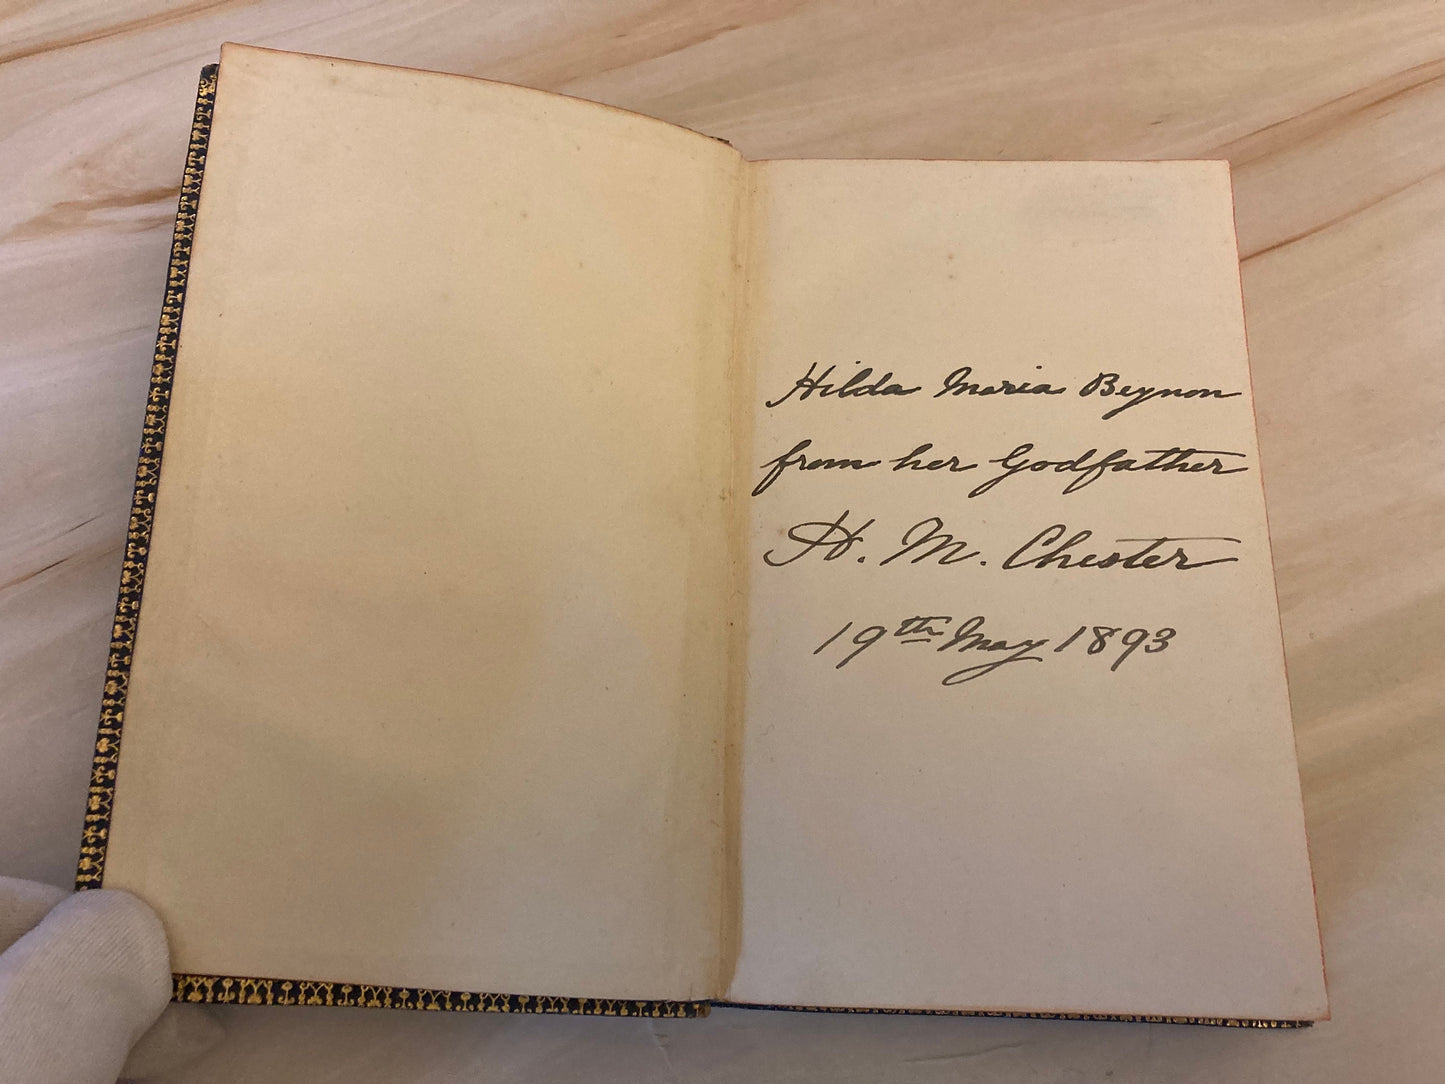 Hilda Maria Beynon
from her Godfather
H. M. Chester
19th May 1893